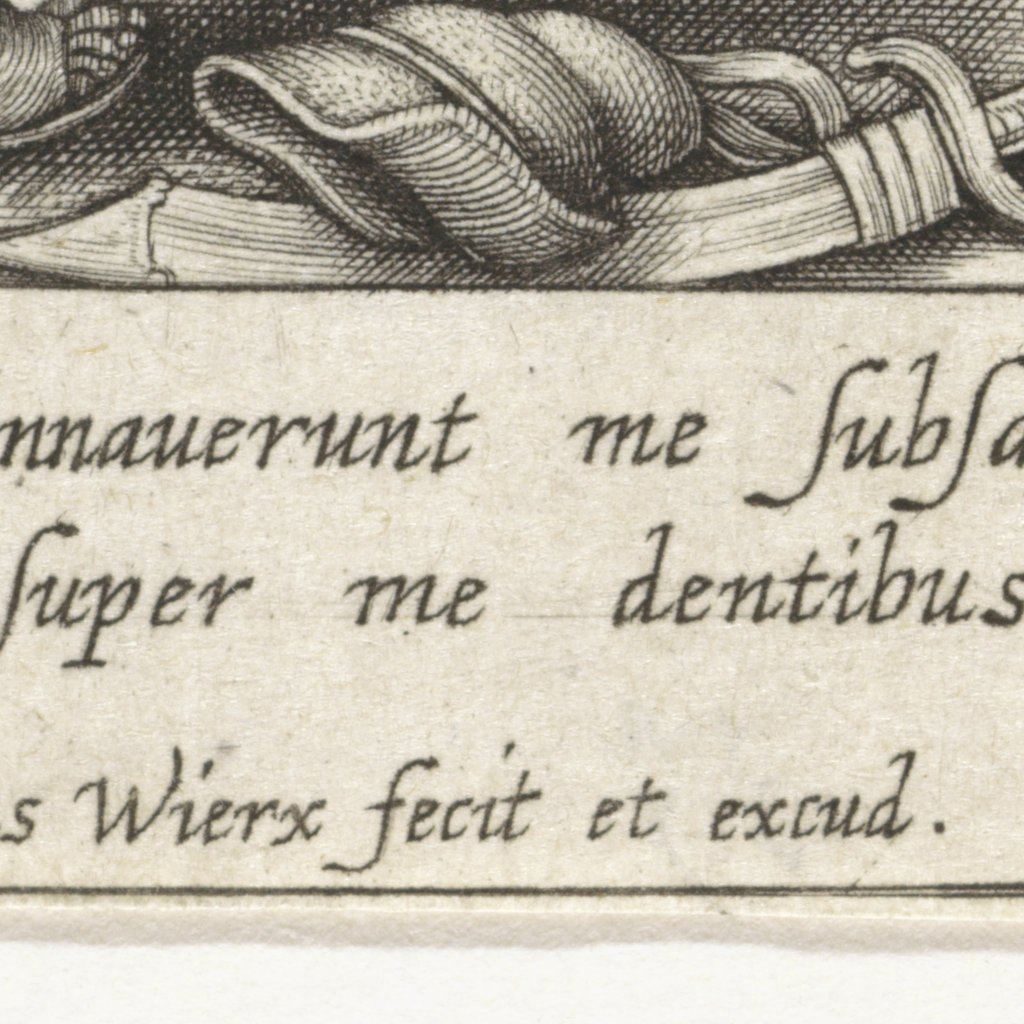 nnauerunt me ſubſa
ſuper me dentibus
s Wierx fecit et excud.